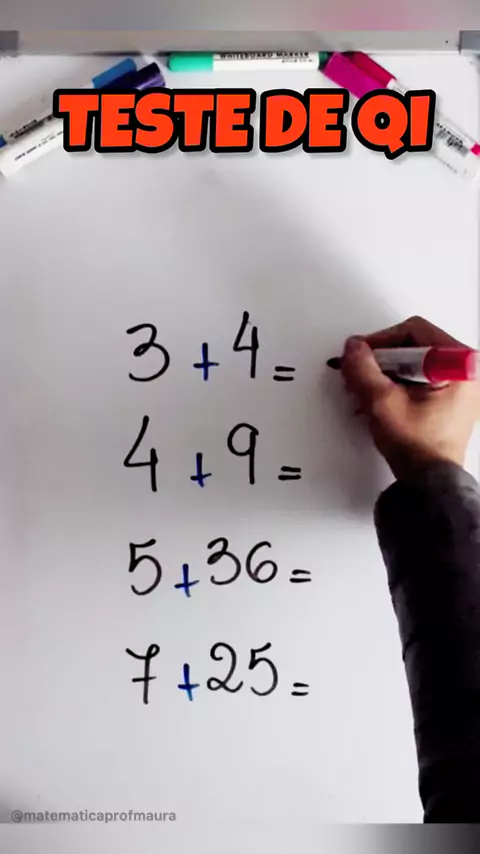 WHITEBOARD MARKER
TESTE DE QI
3 + 4 =
4 + 9 =
5 + 36 =
7 + 25 =
@matematicaprofmaura